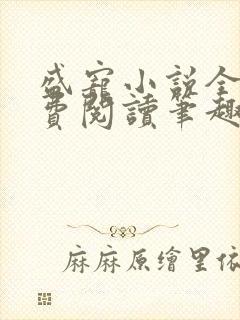 盛寵小說全
費閱讀筆趣
麻麻原繪里依